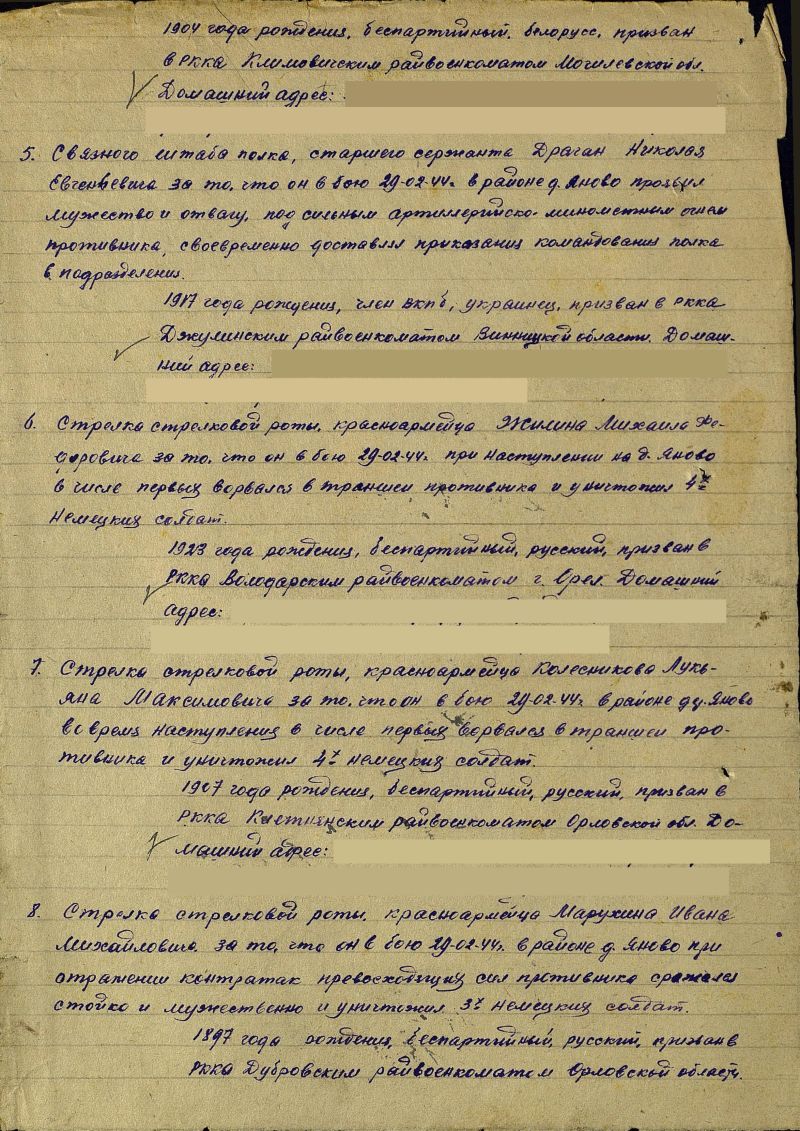 1904 года рождения, беспартийный, белорусс, призван
в РККА Климовичским райвоенкоматом Могилевской обл.
Домашний адрес:
5. Связного штаба полка, старшего сержанта Драган Николая
Евгеньевича за то, что он в бою 29-02-44г. в районе д. Яново проявил
мужество и отвагу, под сильным артиллерийско-минометным огнем
противника, своевременно доставлял приказания командования полка
в подразделения.
1917 года рождения, член ВКПб, украинец, призван в РККА
Джулинским райвоенкоматом Винницкой области. Домаш-
ний адрес:
6. Стрелка стрелковой роты, красноармейца Жилина Михаила Фе-
доровича за то, что он в бою 29-02-44г. при наступлении на д. Яново
в числе первых ворвался в траншеи противника и уничтожил 4х
немецких солдат.
1923 года рождения, беспартийный, русский, призван в
РККА Володарским райвоенкоматом г. Орел. Домашний
адрес:
7. Стрелка стрелковой роты, красноармейца Колесникова Лукь-
яна Максимовича за то, что он в бою 29-02-44г. в районе д. Яново
во время наступления в числе первых ворвался в траншеи про-
тивника и уничтожил 4х немецких солдат.
1907 года рождения, беспартийный, русский, призван в
РККА райвоенкоматом Орловской обл. До-
машний адрес:
8. Стрелка стрелковой роты, красноармейца Марухина Ивана
Михайловича за то, что он в бою 29-02-44г. в районе д. Яново при
отражении контратак превосходящих сил противника сражался
стойко и мужественно и уничтожил 3х немецких солдат.
1897 года рождения, беспартийный, русский, призван в
РККА Дубровским райвоенкоматом Орловской области.